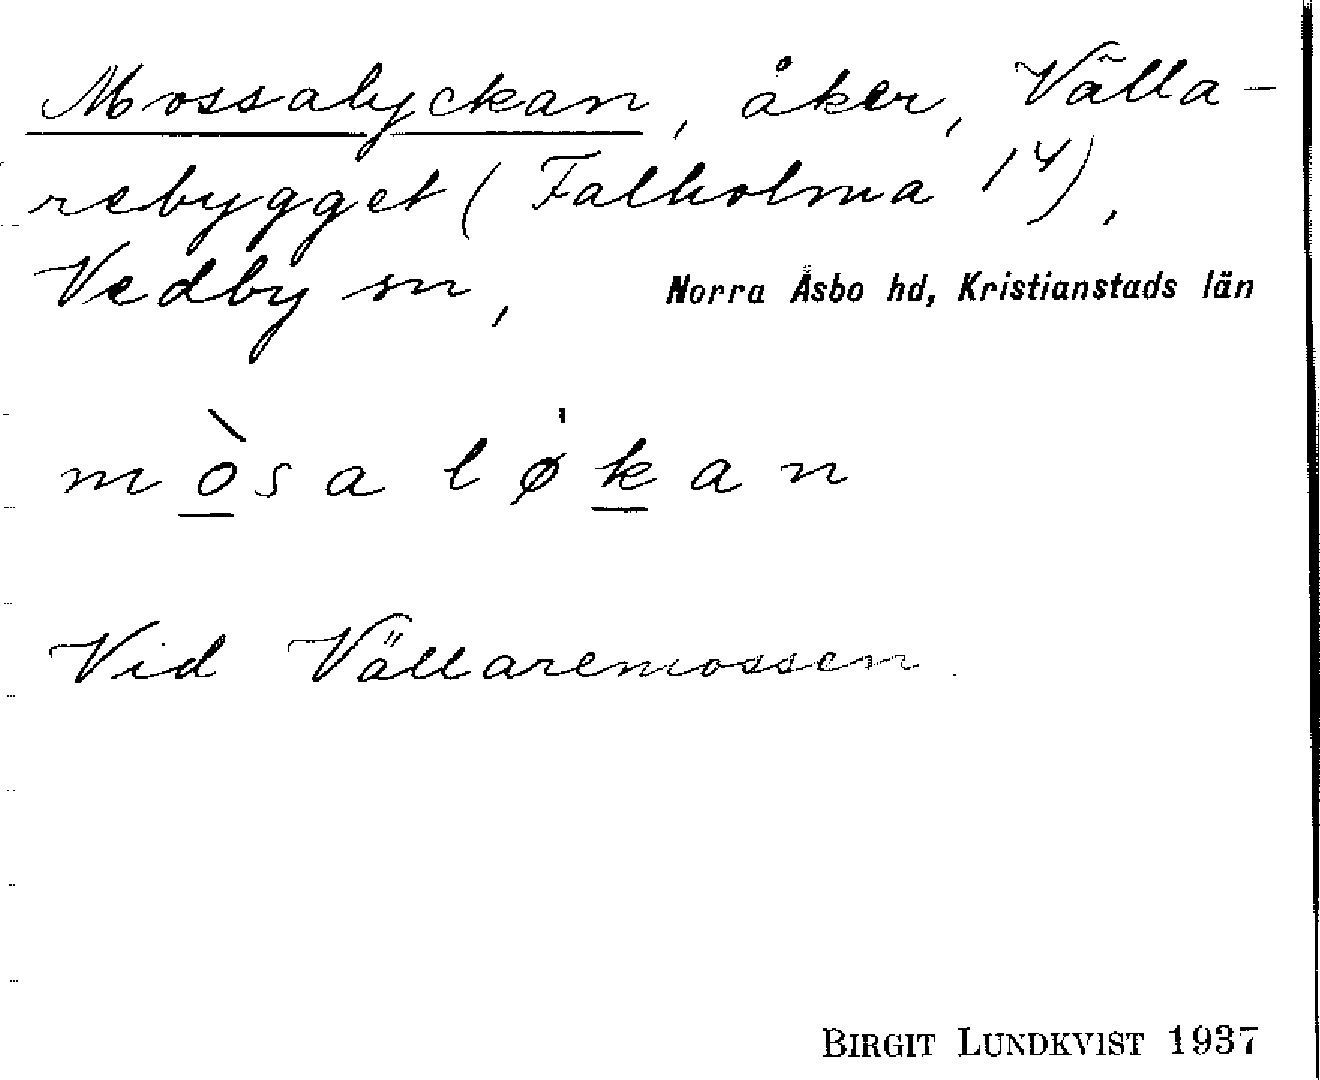 Mossalyckan, åker, Välla-
rebygget (Falholma 1⁴),
Vedby sn, Norra Åsbo hd, Kristianstads län
mòsa løkan
Vid Vällaremossen.
BIRGIT LUNDKVIST 1937